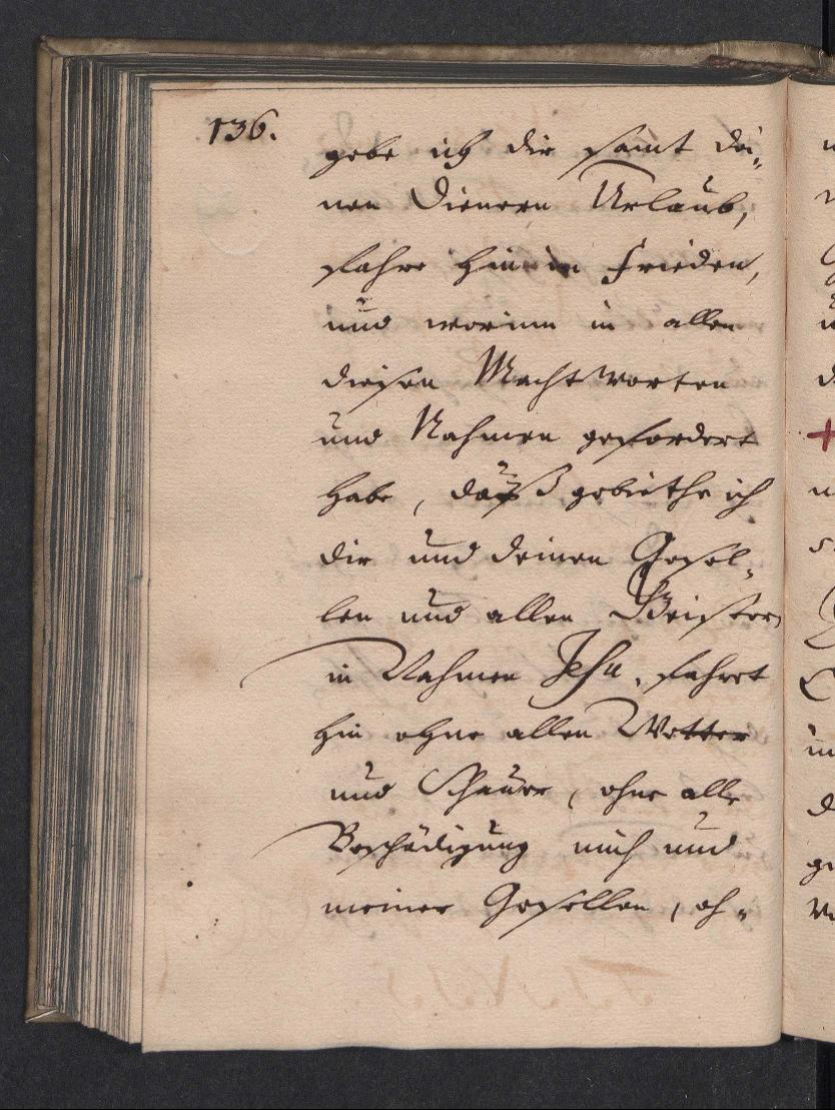 136.
gebe ich dir samt dei„
nen Dienern Urlaub,
fahre hin in Frieden,
und worinn in allen
diesen Machtworten
und Nahmen gefordert
habe, daß gebiethe ich
dir und deinen Gesel„
len und allen Geistern
in Nahmen Jesu. fahret
hin ohne allen Wetter
und Schauer, ohne alle
Beschädigung mich und
meiner Gesellen, oh„